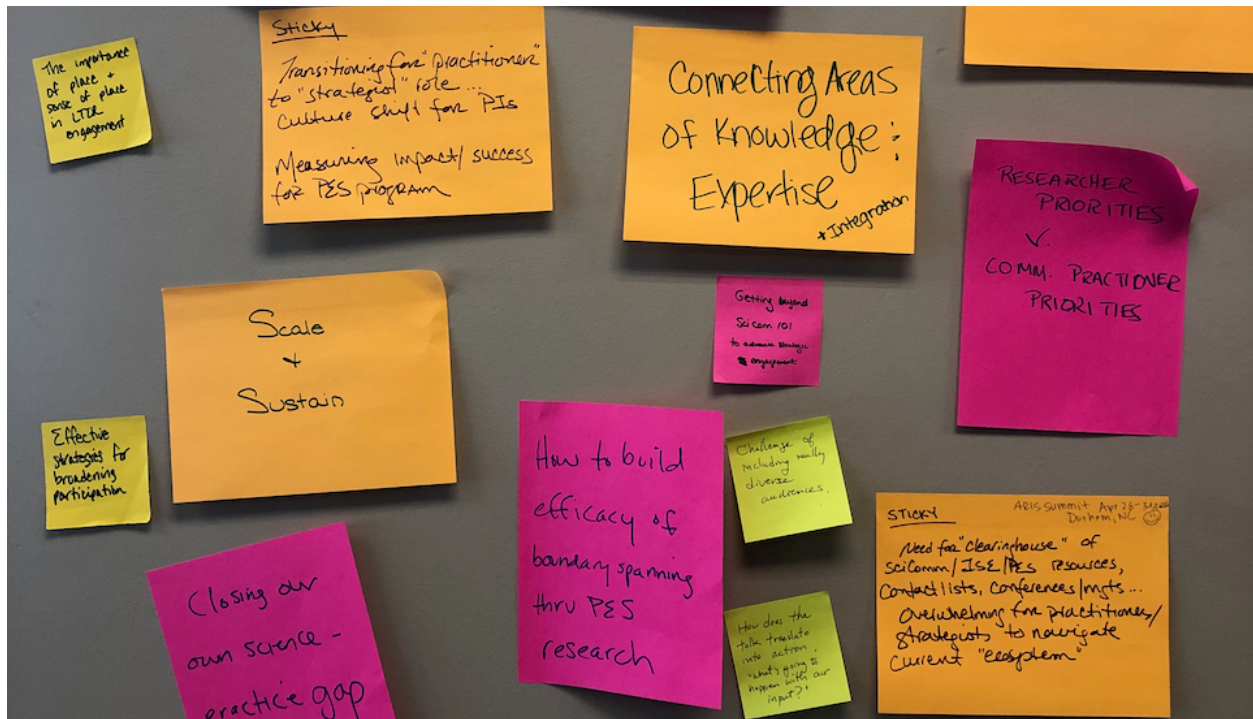 The importance
of place +
sense of place
in LTER
engagement
Sticky
Transitioning for "practitioner"
to "strategist" role...
culture shift for PIs
Measuring impact/success
for PES program
Connecting Areas
of Knowledge :
Expertise
+Integration
RESEARCHER
PRIORITIES
V.
COMM. PRACTIONER
PRIORITIES
Scale
+
Sustain
Getting beyond
Sci com 101
to advance strategic
engagement
Effective
strategies for
broadening
participation
How to build
efficacy of
boundary spanning
thru PES
research
Challenge of
including really
diverse
audiences.
Closing our
own science -
practice gap
How does the
talk translate
into action.
"what's going to
happen with our
input?"
STICKY
ARIS Summit Apr 28-
Durham, NC
Need for "clearinghouse" of
sciComm/ISE/PES resources,
contact lists, conferences/mgts...
overwhelming for practitioners/
strategists to navigate
current "ecosystem"